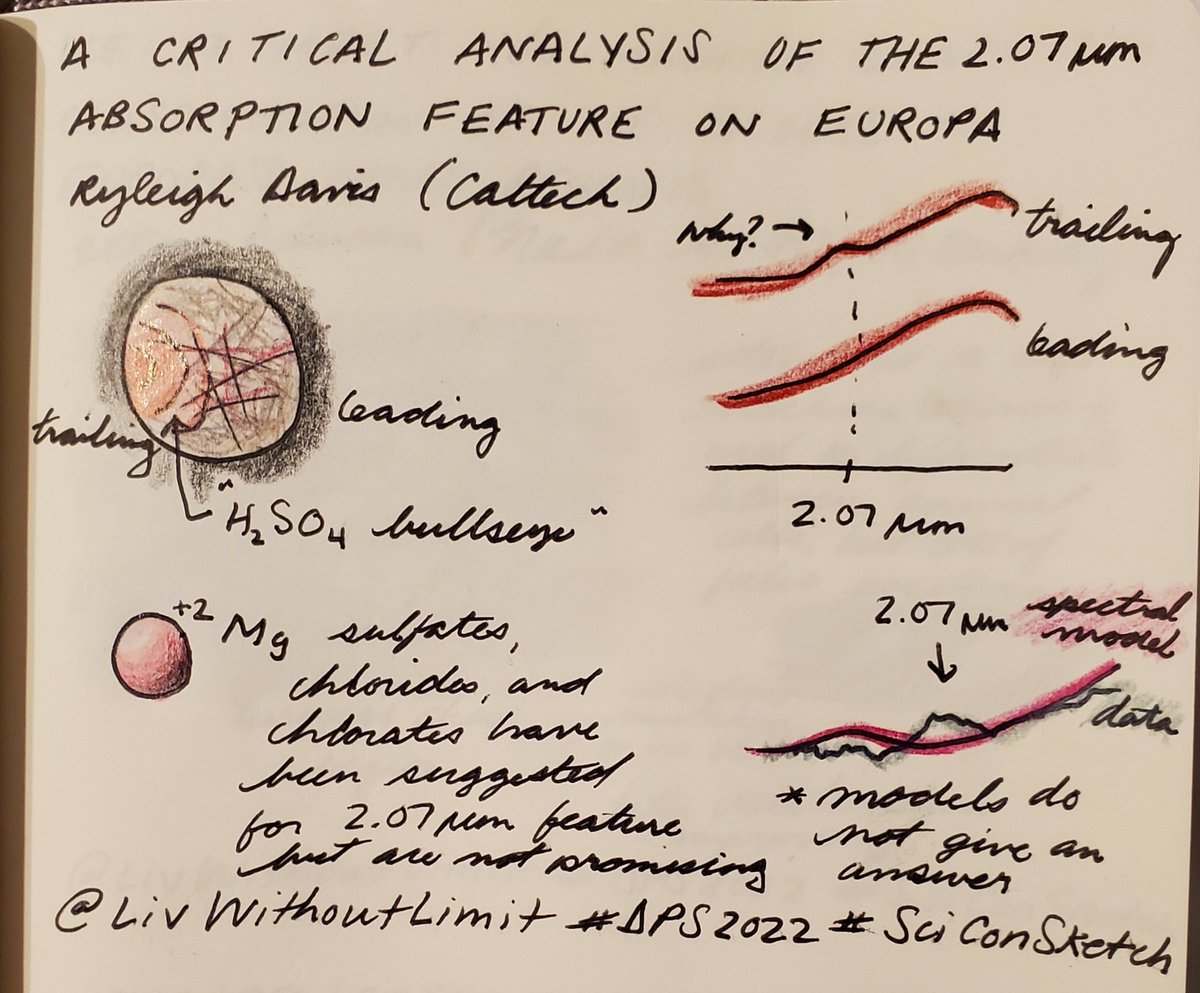 A CRITICAL ANALYSIS OF THE 2.07 μm
ABSORPTION FEATURE ON EUROPA
Ryleigh Davis (Caltech)
why? →
trailing
leading
2.07 μm
trailing
leading
"H₂SO₄ bullseye"
+2
Mg sulfates,
chlorides, and
chlorates have
been suggested
for 2.07 μm feature
but are not promising
2.07 μm
spectral
model
data
* models do
not give an
answer
@LivWithoutLimit #DPS2022 #SciConSketch